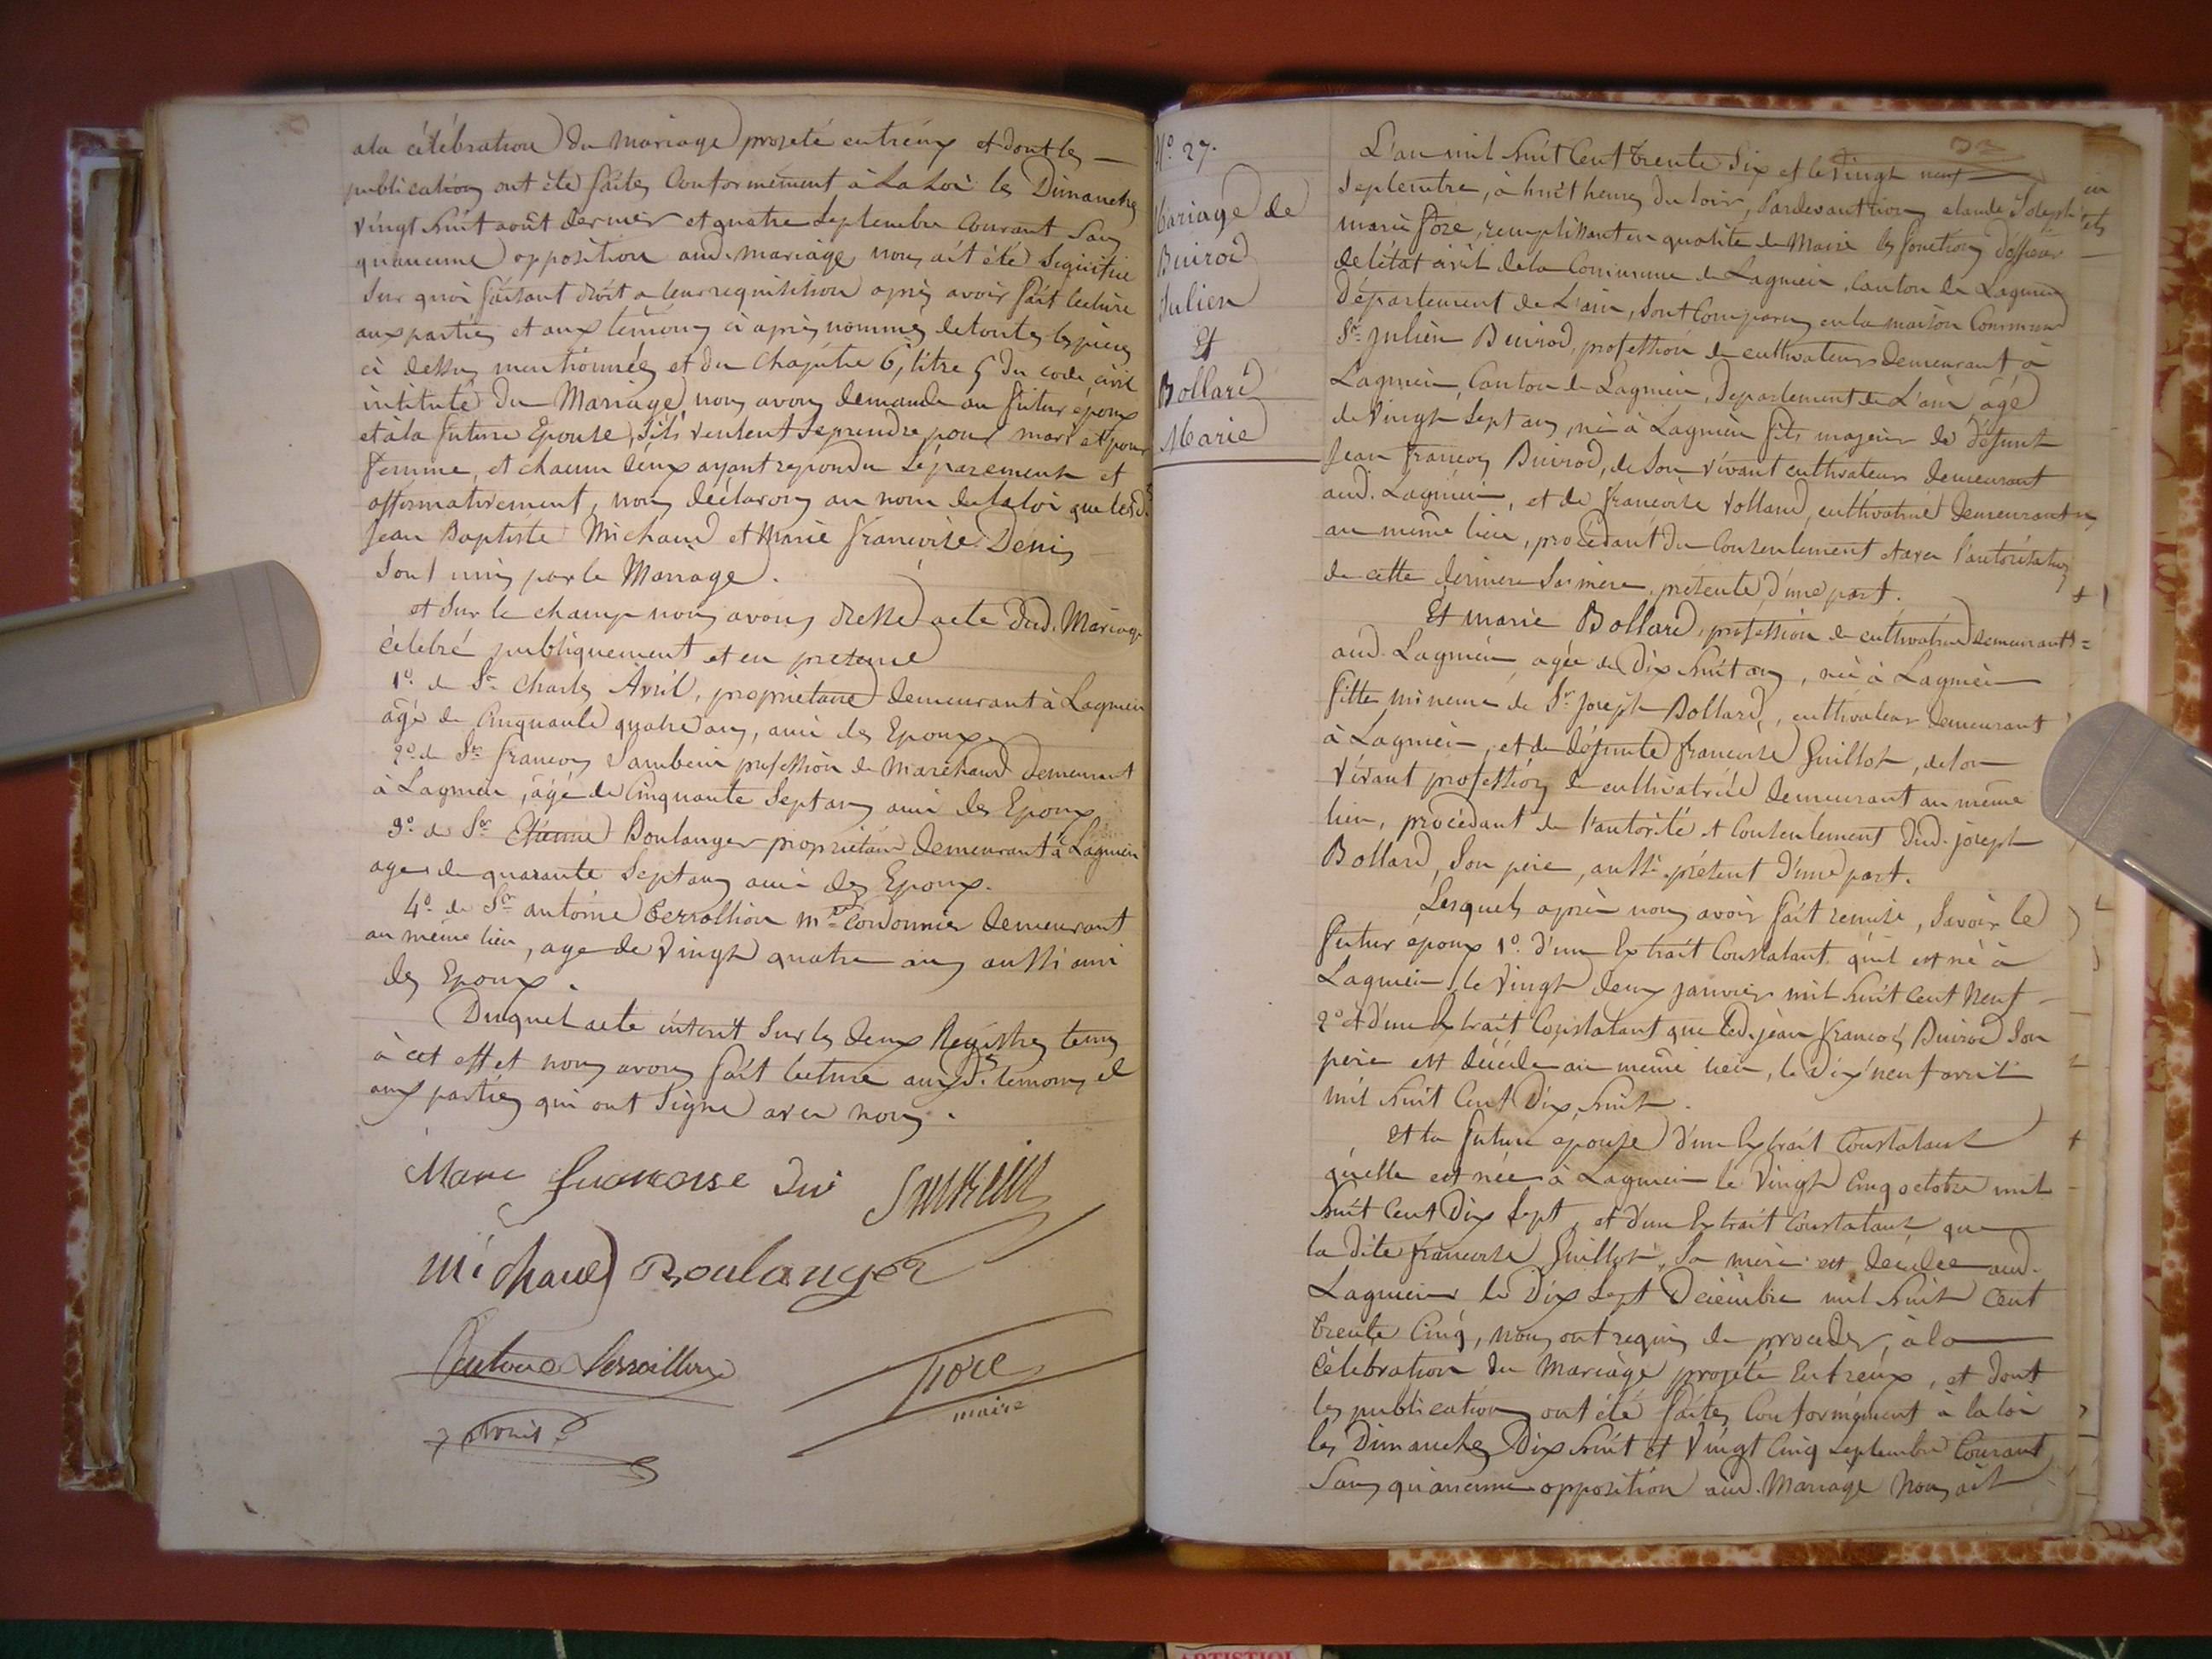 ala célébration du mariage projeté entr'eux et dont les
publications ont été faites conformément à La Loi les Dimanches
vingt huit août dernier et quatre septembre courant sans
qu'aucune opposition aud. mariage nous ait été signifiée
sur quoi faisant droit a leur requisition après avoir fait lecture
aux parties et aux témoins ci après nommés de toutes les pièces
ci dessus mentionnées et du chapitre 6, titre 5 du code civil
intitulé du Mariage, nous avons demandé au futur époux
et à la future Epouse, s'ils veulent se prendre pour mari et pour
femme, et chacun d'eux ayant repondu séparement et
affirmativement, nous déclarons au nom de la loi que lesd.
Jean Baptiste Michaud et Marie francoise Denis
sont unis par le Mariage.
et sur le champ nous avons dressé acte dud. Mariage
célébré publiquement et en presence
1º. de Sr. Charles Avril, propriétaire demeurant à Lagnieu
âgé de Cinquante quatre ans, ami des Epoux
2º. de Sr. francois Sambein profession de Maréchaud demeurant
à Lagnieu, âgé de Cinquante Sept ans ami des Epoux
3º. de Sr. Etienne Boulanger propriétaire demeurant à Lagnieu
agé de quarante Sept ans ami des Epoux.
4º. de Sr. antoine Serrallion md. Cordonnier demeurant
au même lieu, age de Vingt quatre ans aussi ami
des Epoux.
Duquel acte inscrit sur les deux Registres tenus
à cet effet nous avons fait lecture auxds. temoins et
aux parties qui ont signé avec nous.
Marie francoise
michaud Boulanger
Antoine Serraillion
fore
maire
Nº. 27.
Mariage de
Buirod
Julien
Et
Bollard
Marie
L'an mil huit Cent trente Six et le Vingt neuf
Septembre, à huit heures du soir, Pardevant nous claude Joseph
marie fore, remplissant en qualité de Maire les fonctions d'officier
de l'état civil de la Commune de Lagnieu, Canton de Lagnieu
Département de L'ain, sont Comparus en la maison Commune
Sr. Julien Buirod, profession de cultivateur demeurant à
Lagnieu, Canton de Lagnieu, Département de L'ain, âgé
de Vingt Sept ans, né à Lagnieu fils majeur de défunt
Jean francois Buirod, de son vivant cultivateur demeurant
aud. Lagnieu, et de francoise Volland, cultivatrice demeurant
au même lieu, procédant du Consentement et avec l'autorisation
de cette derniere sa mère, présente, d'une part.
Et marie Bollard, profession de cultivatrice demeurant
aud. Lagnieu, agée de Dix huit ans, née à Lagnieu
fille mineure de Sr. Joseph Bollard, cultivateur demeurant
à Lagnieu, et de défunte francoise Guillot, de son
vivant profession de cultivatrice demeurant au même
lieu, procédant de l'autorité et Consentement dud. joseph
Bollard, son pere, aussi présent d'une part.
Lesquels après nous avoir fait remise, savoir le
futur époux 1º. d'un Extrait Constatant qu'il est né à
Lagnieu le Vingt deux janvier mil huit cent neuf
2º et d'un Extrait Constatant que led. jean francois Buirod son
pere est décédé au même lieu, le dix neuf avril
mil huit Cent Dix huit.
Et la future épouse d'un Extrait Constatant
qu'elle est née à Lagnieu le Vingt Cinq octobre mil
huit Cent Dix Sept, et d'un Extrait Constatant que
la dite francoise Guillot, sa mère est decedée aud.
Lagnieu le Dix Sept Décembre mil huit Cent
trente Cinq, nous ont requis de proceder, à la
Célébration du Mariage projeté Entreux, et dont
les publications ont été faites Conformément à la loi
les Dimanches Dix huit et Vingt Cinq septembre Courant
Sans qu'aucune opposition aud. Mariage nous ait